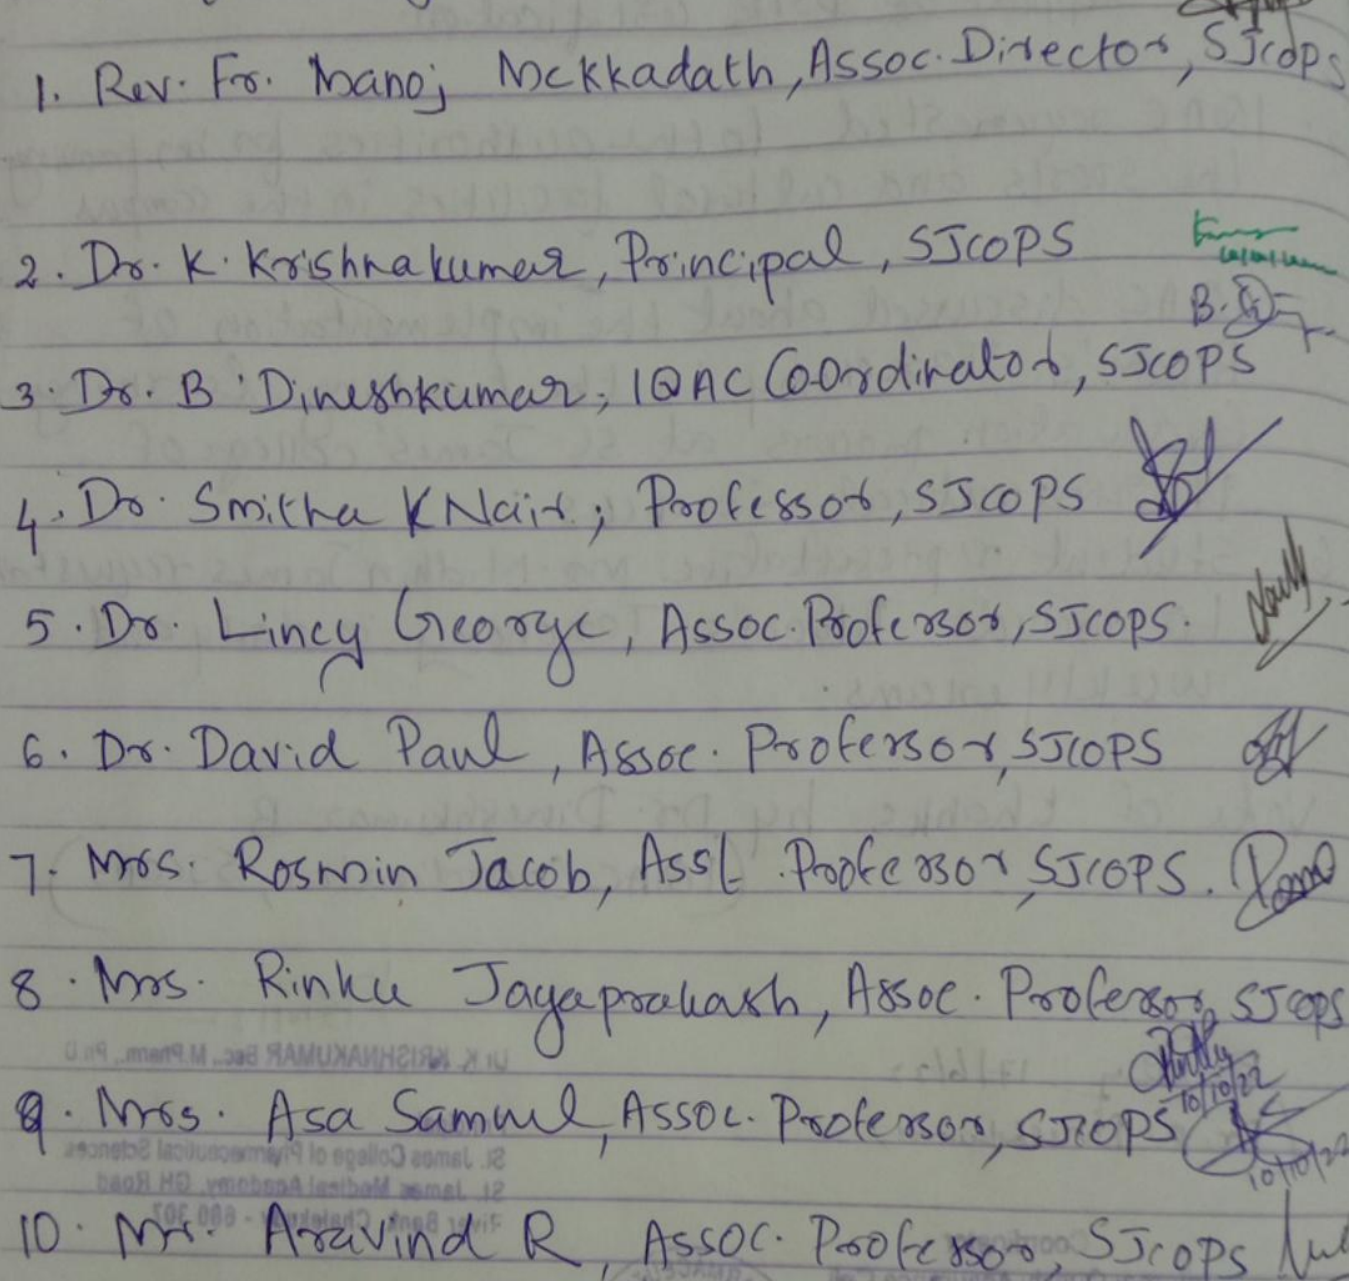 1. Rev. Fr. Manoj Mekkadath, Assoc. Director, SJCOPS
2. Dr. K. Krishnakumar, Principal, SJCOPS
3. Dr. B Dineshkumar, IQAC Coordinator, SJCOPS
4. Dr. Smitha K Nair, Professor, SJCOPS
5. Dr. Lincy George, Assoc. Professor, SJCOPS.
6. Dr. David Paul, Assoc. Professor, SJCOPS
7. Mrs. Rosmin Jacob, Asst. Professor, SJCOPS.
8. Mrs. Rinku Jayaprakash, Assoc. Professor, SJCOPS
10/10/22
9. Mrs. Asa Samuel, Assoc. Professor, SJCOPS
10/10/22
10. Mr. Aravind R, Assoc. Professor, SJCOPS